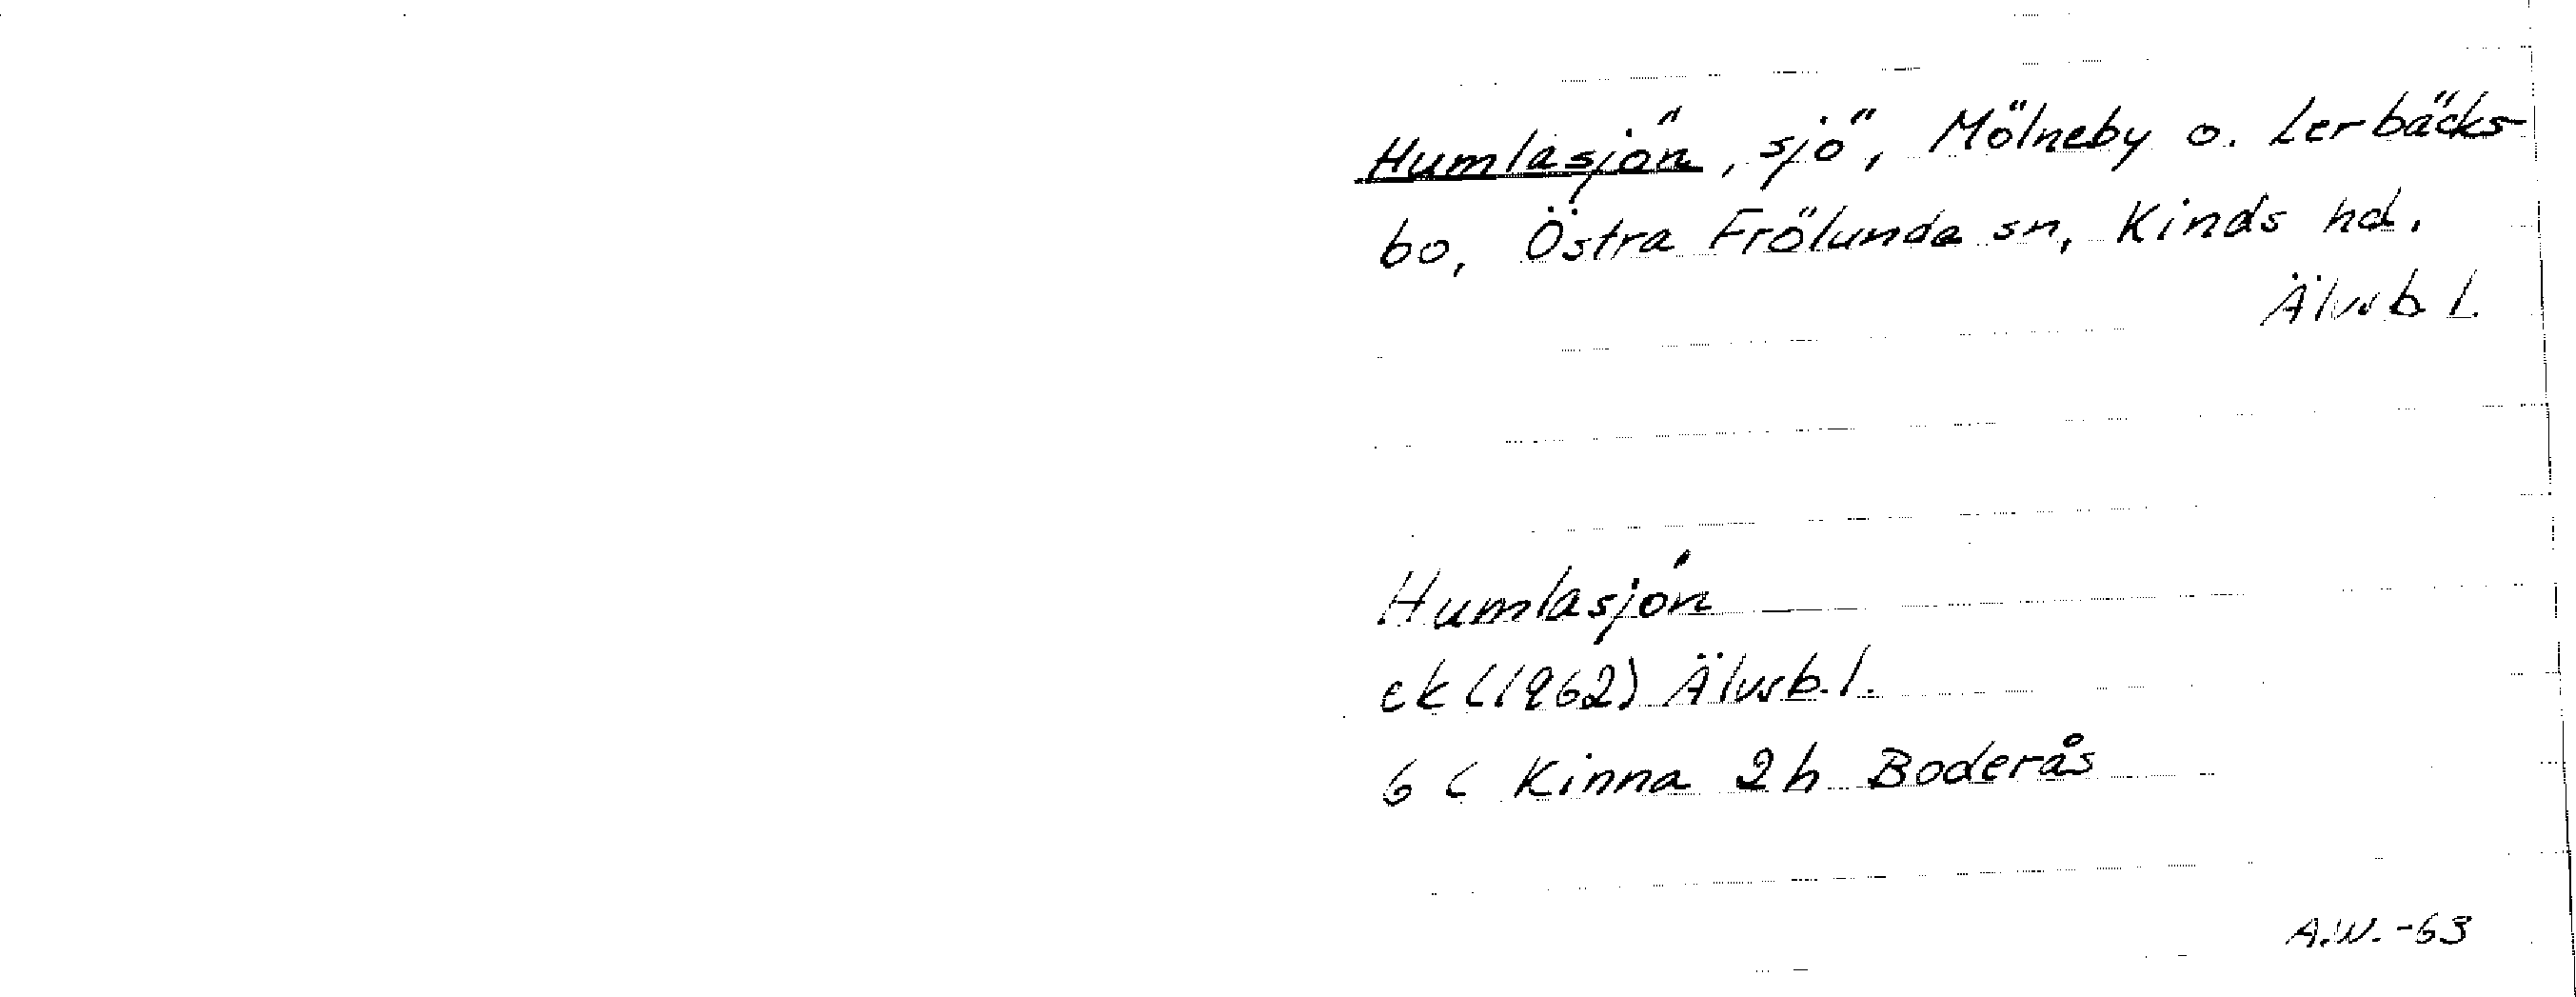 Humlasjön, sjö, Mölneby o. Lerbäcks-
bo, Östra Frölunda sn, Kinds hd.
Älvsb l.
Humlasjön
ek (1962) Älvsb. l.
6 C Kinna 2h Boderås
A.W. -63